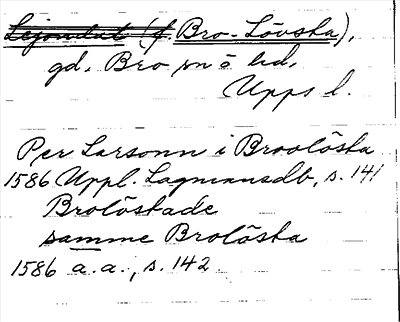 Lejondal (f. Bro-Lövsta),
gd, Bro sn o hd,
Upps l.
Per Larsonn i Broolösta
1586 Uppl. Lagmansdb, s. 141
Brolöstade
samme Brolösta
1586 a.a., s. 142